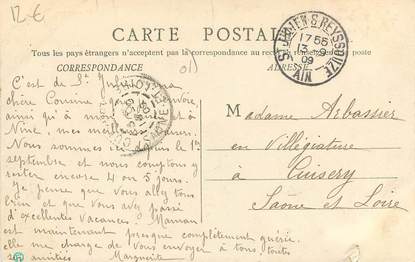 12 €
CARTE POSTALE
Tous les pays étrangers n'acceptent pas la correspondance au recto
CORRESPONDANCE
ADRESSE
St JULIEN-S-REYSSOUZE
17 55
13 -9
09
AIN
C'est de St Julien
chère Cousine
ainsi qu'à mon
Nine, mes meilleurs
Nous sommes ici depuis le 1er
septembre et nous comptons y
rester encore 4 ou 5 jours.
Je pense que vous allez tous
bien et que vous avez passé
d'excellentes vacances. Maman
est maintenant presque complètement guérie.
elle me charge de vous envoyer à tous toutes
ses amitiés Marguerite
Madame Arbassier
en Villégiature
à Cuisery
Saône et Loire